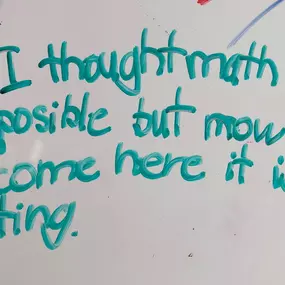 I thought math
posible but mow
come here it i
ting.